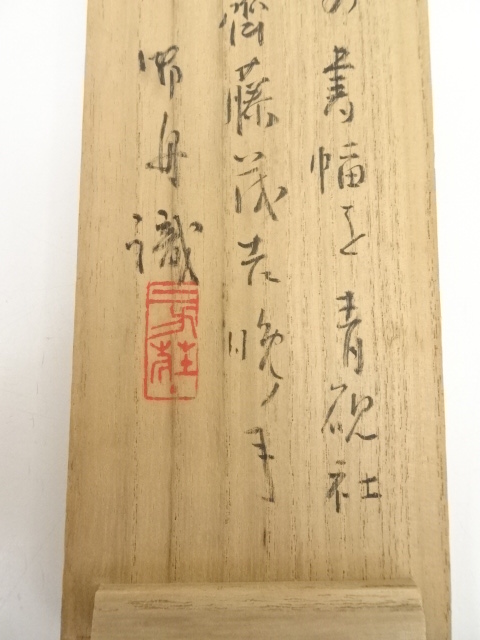 の書幅を青硯社
齋藤茂吉晩ノ手
舟識